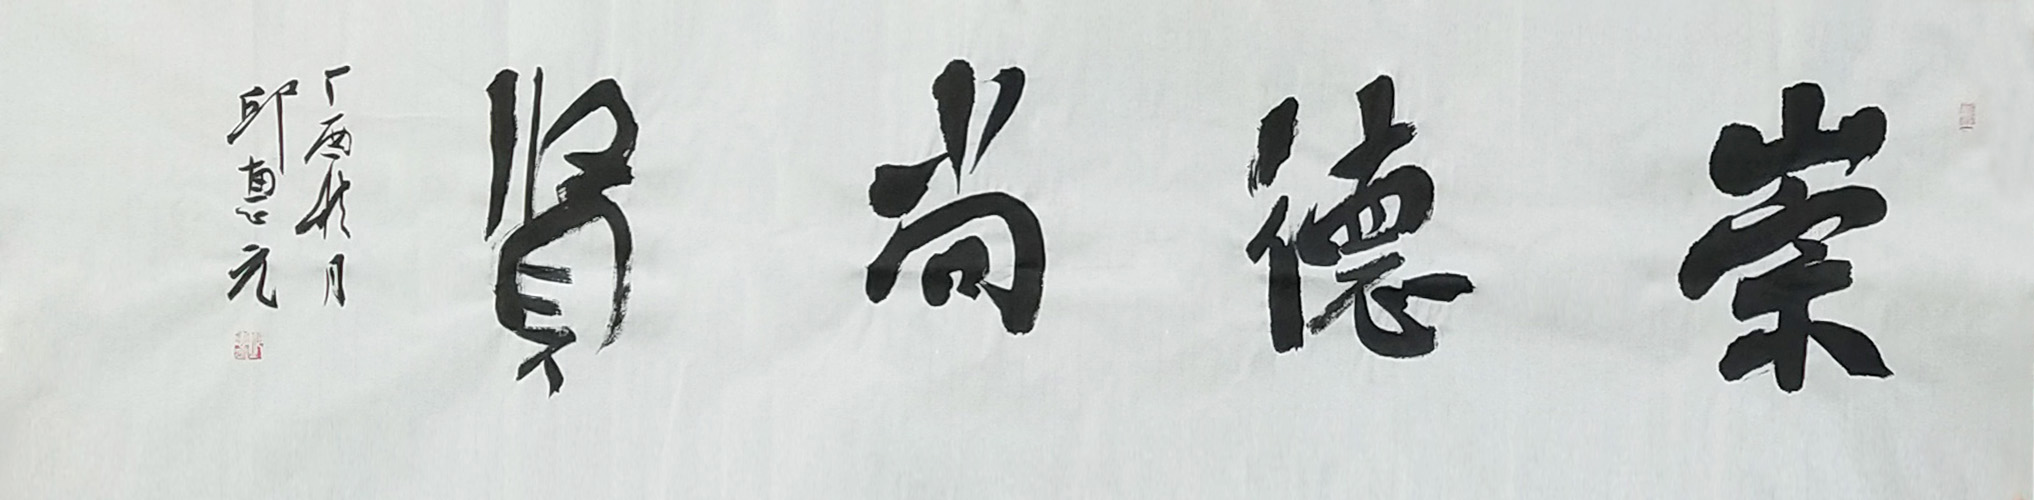 崇德尚贤
丁酉秋月
邱惠元